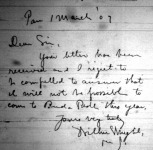 Pau 1 March '09
Dear Sir,
Your letter has been
received and I regret to
be compelled to answer that
it will not be possible to
come to Buda Pesth this year.
Yours very truly
Wilbur Wright,